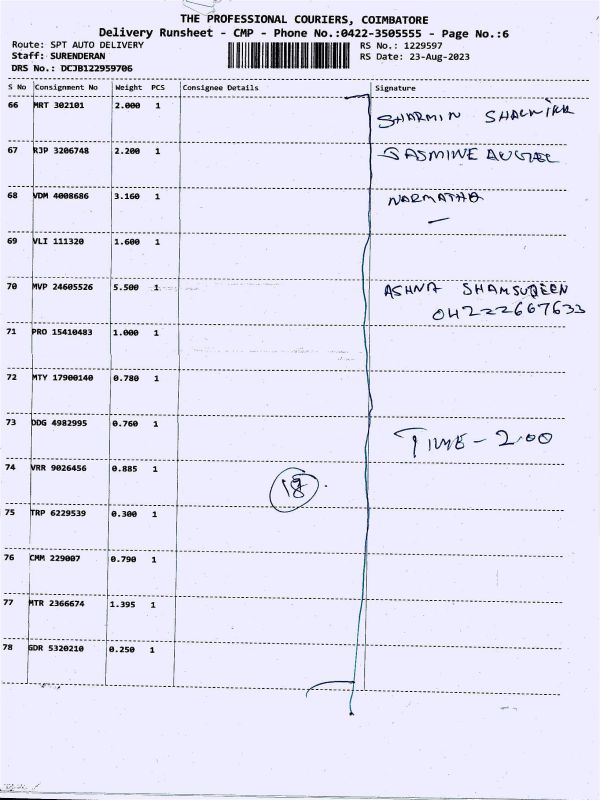 THE PROFESSIONAL COURIERS, COIMBATORE
Delivery Runsheet - CMP - Phone No.:0422-3505555 - Page No.:6
Route: SPT AUTO DELIVERY RS No.: 1229597
Staff: SURENDERAN RS Date: 23-Aug-2023
DRS No.: DCJB122959706
S No Consignment No Weight PCS Consignee Details Signature
66 MRT 302101 2.000 1 SHARMIN
67 RJP 3206748 2.200 1 JASMINE
68 VDM 4008686 3.160 1 NARMATHA
69 VLI 111320 1.600 1
70 MVP 24605526 5.500 1 ASHNA SHAMSUDEEN
04222667633
71 PRO 15410483 1.000 1
72 MTY 17900140 0.780 1
73 DDG 4982995 0.760 1 TIME - 2.00
74 VRR 9026456 0.885 1
18
75 TRP 6229539 0.300 1
76 CMM 229007 0.790 1
77 MTR 2366674 1.395 1
78 GDR 5320210 0.250 1